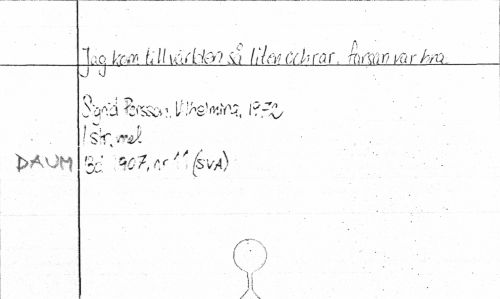 Jag kom till världen så liten och rar, farsan var bra.
Sigrid Persson, Vilhelmina, 1972
1 str, mel
DAUM Bd 1907, nr 11 (SVA)